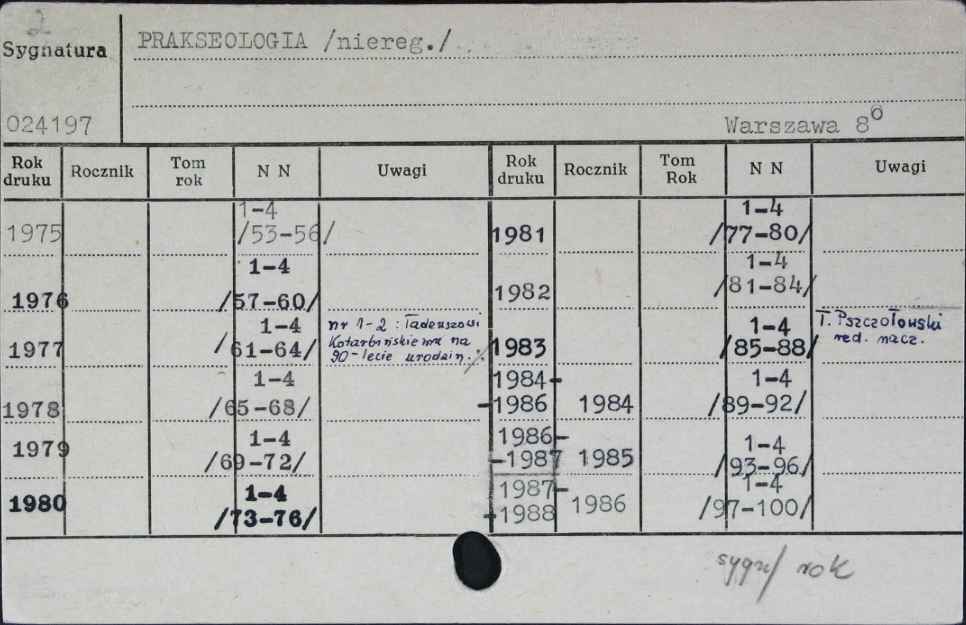 2
Sygnatura
PRAKSEOLOGIA /niereg./
024197
Warszawa 8⁰
Rok druku Rocznik Tom rok N N Uwagi Rok druku Rocznik Tom Rok N N Uwagi
1975 1-4 /53-56/
1976 1-4 /57-60/
1977 1-4 /61-64/ nr 1-2 : Tadeuszowi Kotarbińskiemu na 90-lecie urodzin.
1978 1-4 /65-68/
1979 1-4 /69-72/
1980 1-4 /73-76/
1981 1-4 /77-80/
1982 1-4 /81-84/
1983 1-4 /85-88/ T. Pszczołowski red. nacz.
1984-
-1986 1984 1-4 /89-92/
1986-
-1987 1985 1-4 /93-96/
1987-
-1988 1986 1-4 /97-100/
sygn/ rok